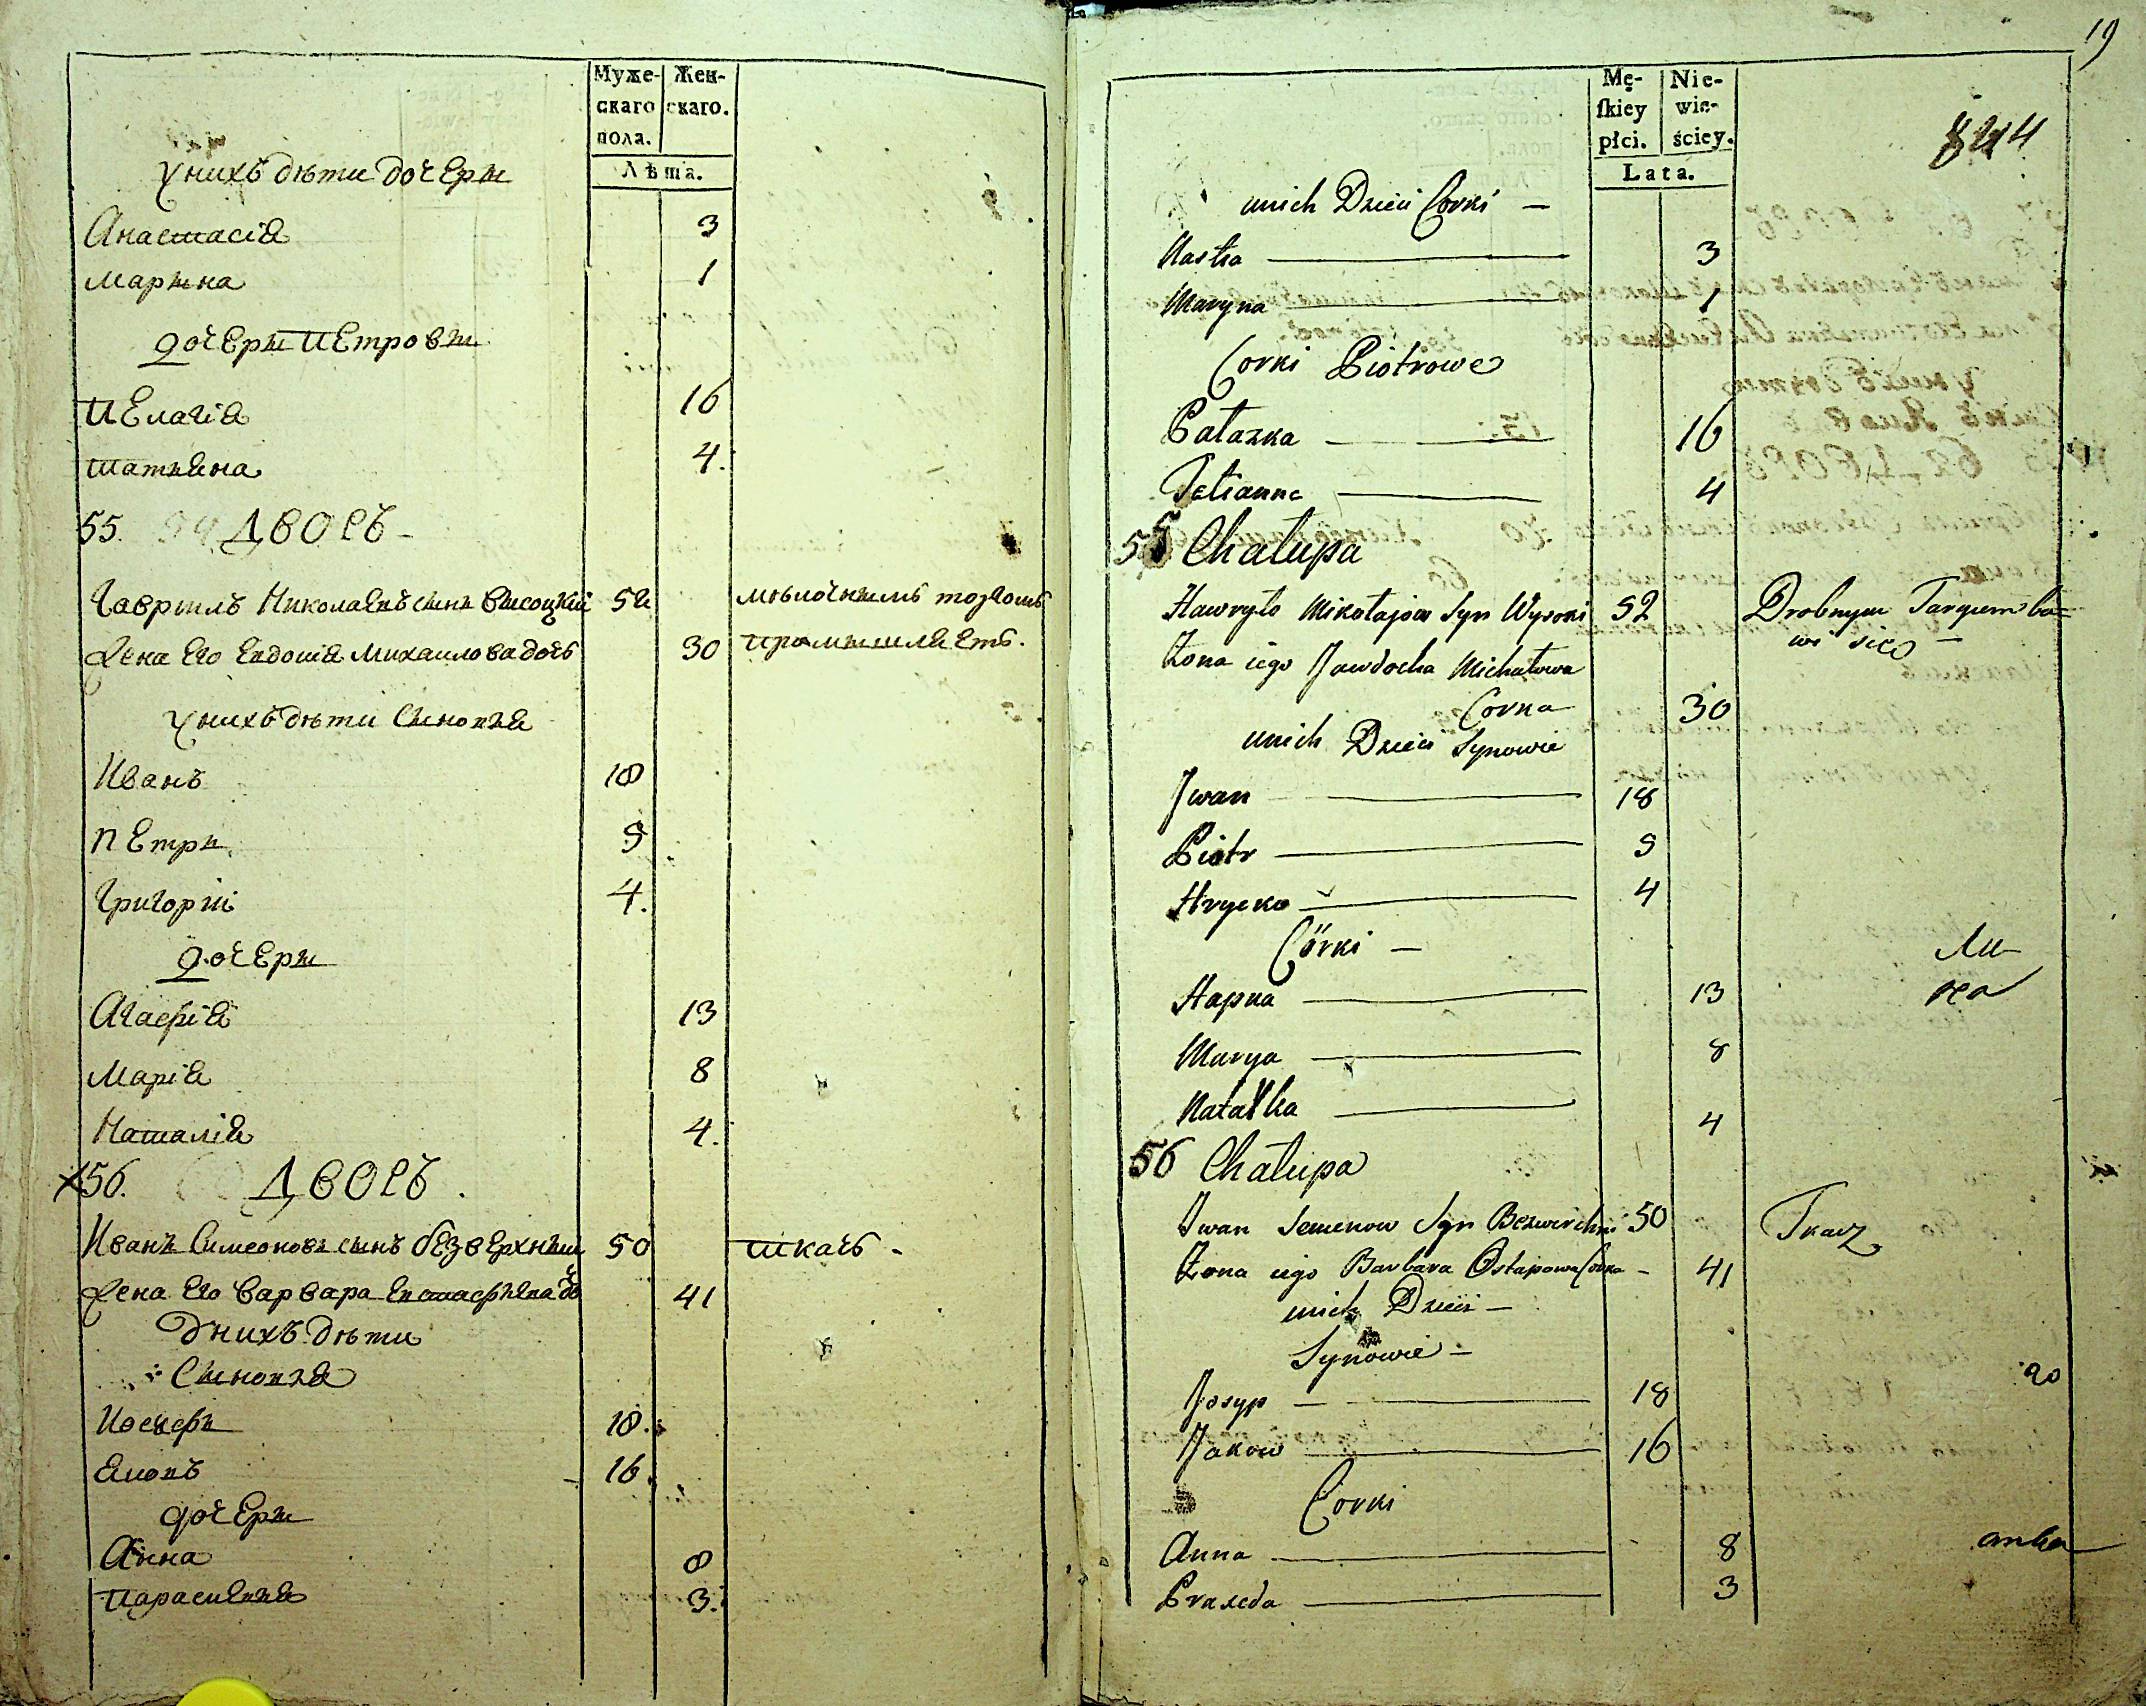 Муже-
скаго
пола.
Жен-
скаго.
Лѣта.
у нихъ дѣти дочери
Анастасія 3
Марина 1
дочери Петровы
Пелагія 16
Татіяна 4.
55. дворъ
Гаврилъ Николаевъ сынъ Висоцкій 52 мѣлочнымъ торгомъ
Жена его Евдокія Михаилова дочь 30 промышляетъ.
у нихъ дѣти Синовья
Иванъ 18
Петръ 9
Григорій 4.
дочери
Агафія 13
Марія 8
Наталія 4.
56. дворъ.
Иванъ Симеоновъ сынъ безверхный 50 ткачъ
Жена его Варвара Евстафіева до 41
у нихъ дѣти
Синовья
Иосифъ 18.
Яковъ 16.
дочери
Анна 8
Парасмевія 3.
19
Mę-
skiey
płci.
Nie-
wie-
ściey.
Lata.
844
unich Dzieci Corki —
Nastia 3
Maryna 1
Corki Piotrowe
Pałazka 16
Tetianna 4
55 Chałupa
Hawryło Mikołajow Syn Wysocki 52 Drobnym Targiem ba=
wi sieo —
Zona iego Jawdocha Michałowa
Corka 30
unich Dzieci Synowie
Jwan 18
Piotr 9
Hrycko 4
Córki —
Hapka 13
Marya 8
Natałka 4
56 Chałupa
Jwan Semenow Syn Bezwerchni 50 Tkacz
Zona iego Barbara Ostapowa Corka — 41
unich Dzieci —
Synowie —
Josyp 18
Jakow 16
Corki
Anna 8
Praxeda 3